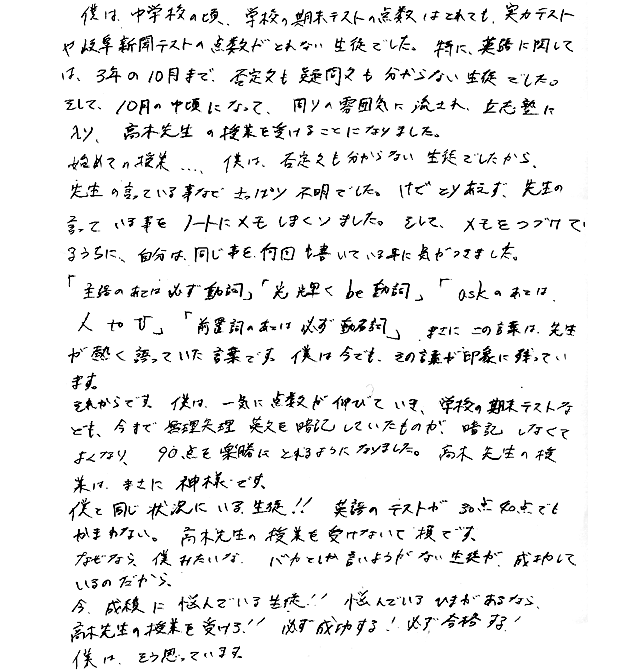 僕は、中学校の頃、学校の期末テストの点数はとれても、実力テスト
や岐阜新聞テストの点数がとれない生徒でした。特に、英語に関して
は、3年の10月まで、否定文も疑問文も分からない生徒でした。
そして、10月の中頃になって、周りの雰囲気に流され、立志塾に
入り、高木先生の授業を受けることになりました。
始めての授業…、僕は、否定文も分からない生徒でしたから、
先生の言っている事など、さっぱり不明でした。けど、とりあえず、先生の
言っている事をノートにメモしまくりました。そして、メモをつづけてい
るうちに、自分は、同じ事を何回も書いている事に気がつきました。
「主語のあとは必ず動詞」「光輝くbe動詞」「askのあとは、
人 to V」「前置詞のあとは必ず動名詞」まさにこの言葉は、先生
が熱く語っていた言葉です。僕は今でも、その言葉が印象に残ってい
ます。
それからです。僕は、一気に点数が伸びていき、学校の期末テストな
ども、今まで無理矢理英文を暗記していたものが、暗記しなくて
よくなり、90点を楽勝にとれるようになりました。高木先生の授
業は、まさに神様です。
僕と同じ状況にいる生徒!! 英語のテストが30点40点でも
かまわない。高木先生の授業を受けないで損です。
なぜなら、僕みたいな、バカとしか言いようがない生徒が、成功して
いるのだから、
今、成績に悩んでいる生徒!! 悩んでいるひまがあるなら、
高木先生の授業を受けろ!! 必ず成功する! 必ず合格する!
僕は、そう思っています。